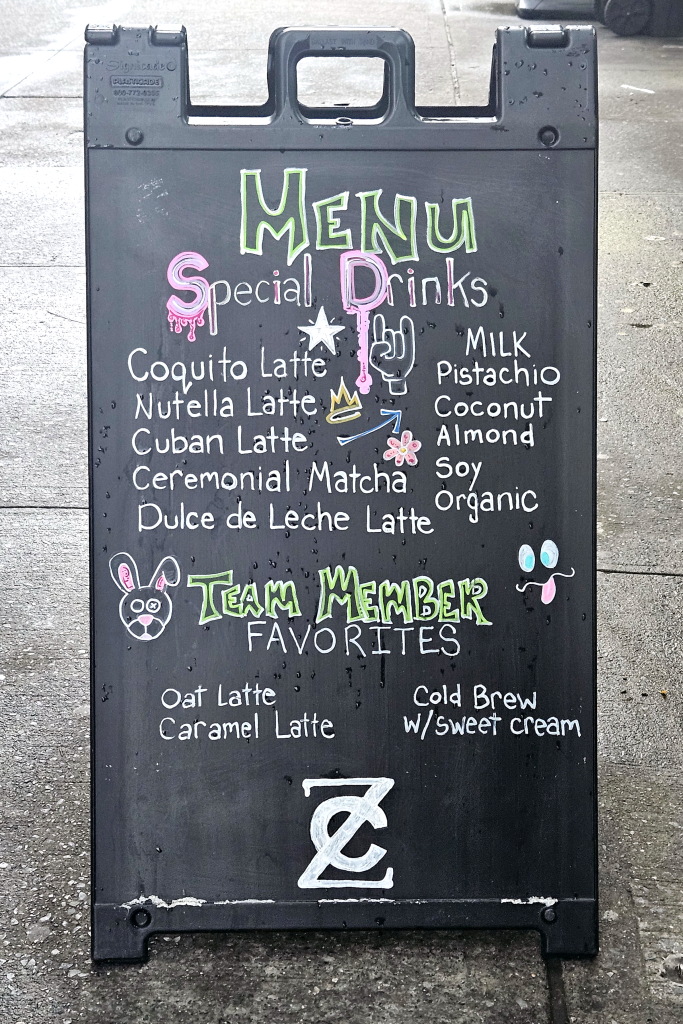 Signicade
PLASTICADE
MENU
Special Drinks
Coquito Latte
Nutella Latte
Cuban Latte
Ceremonial Matcha
Dulce de Leche Latte
MILK
Pistachio
Coconut
Almond
Soy
Organic
TEAM MEMBER
FAVORITES
Oat Latte
Caramel Latte
Cold Brew
w/sweet cream
ZC